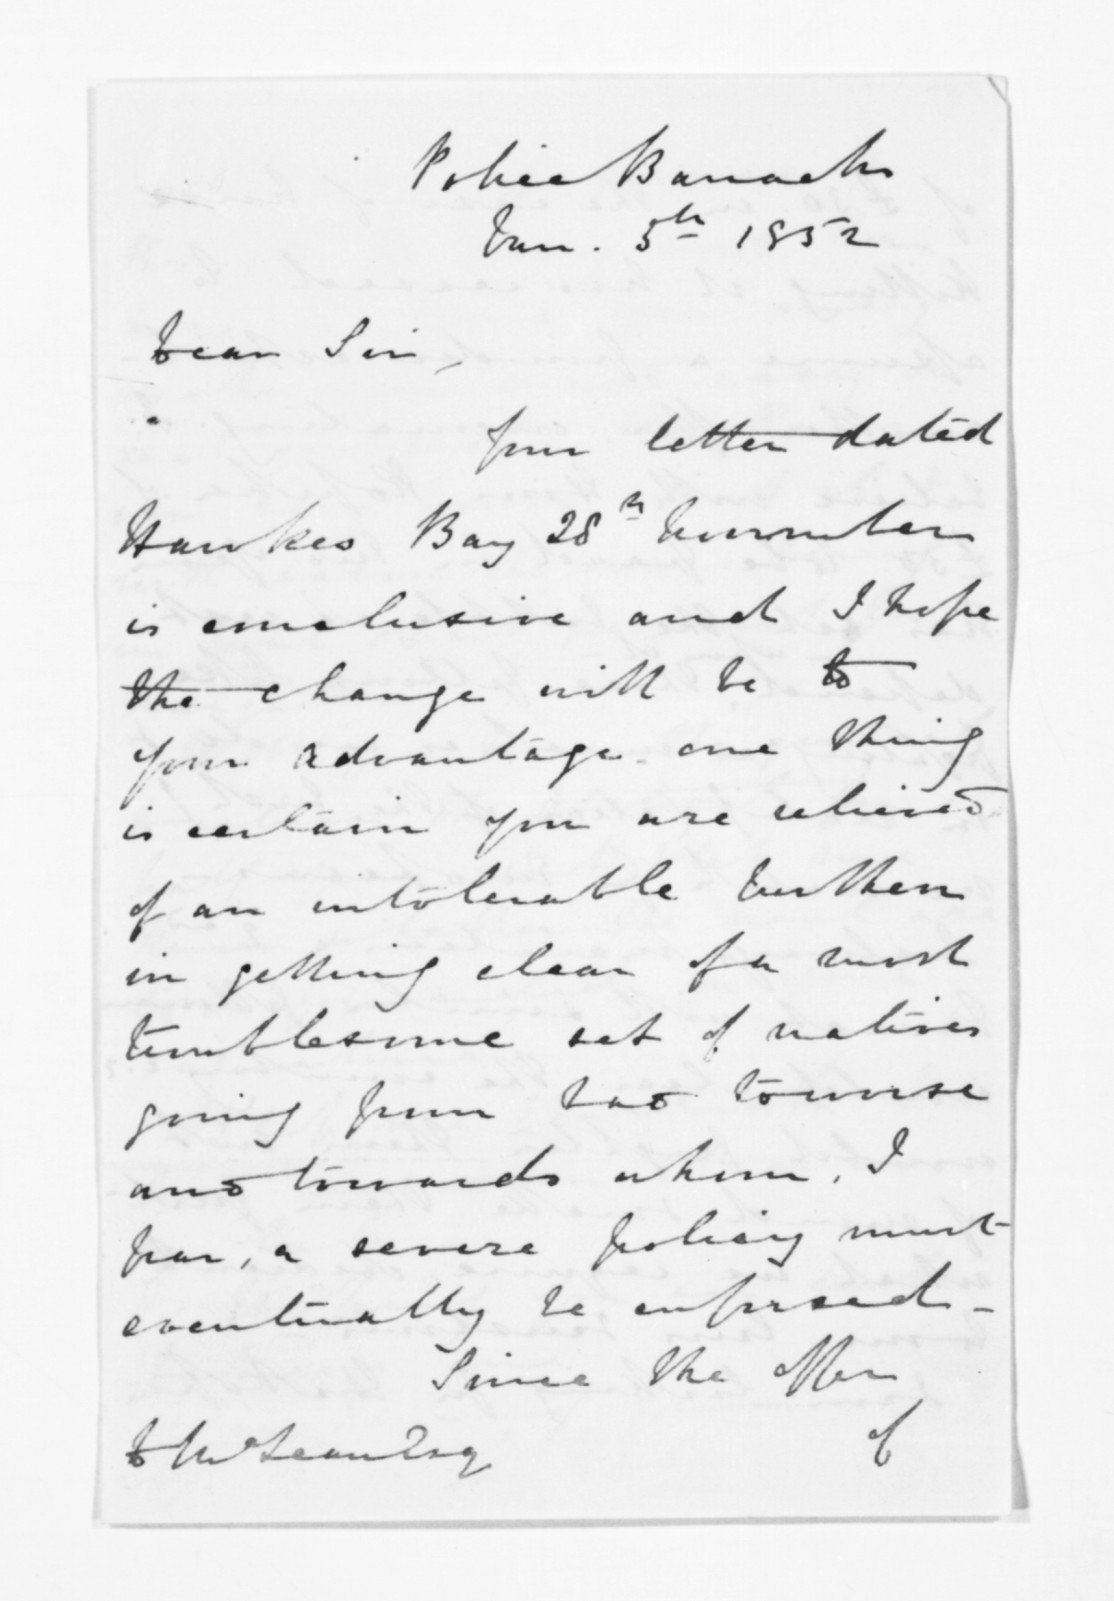 Police Barracks
Jan. 5th 1852
Dear Sir,
Your letter dated
Hawkes Bay 28th November
is conclusive and I hope
the change will be to
your advantage. one thing
is certain you are relieved
of an intolerable burthen
in getting clear of a most
troublesome set of natives
going from bad to worse
and towards whom, I
fear, a severe policy must
eventually be enforced -
Since the offer
of
D McLean Esq